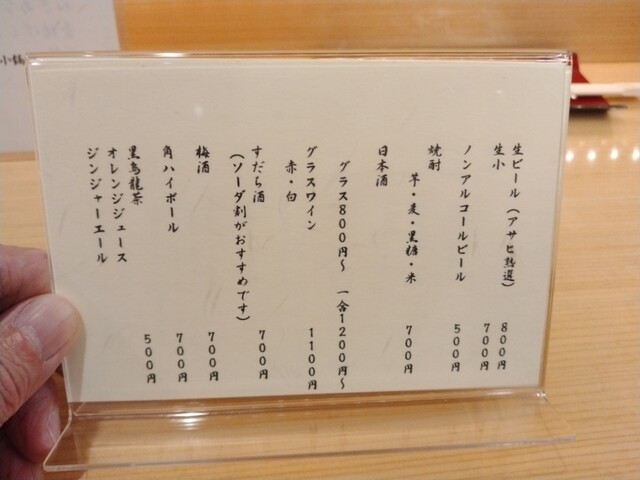 生ビール（アサヒ熟選） 800円
生小 700円
ノンアルコールビール 500円
焼酎
芋・麦・黒糖・米 700円
日本酒
グラス800円〜 一合1200円〜
グラスワイン
赤・白 1100円
すだち酒
（ソーダ割がおすすめです） 700円
梅酒 700円
角ハイボール 700円
黒烏龍茶
オレンジジュース 500円
ジンジャーエール